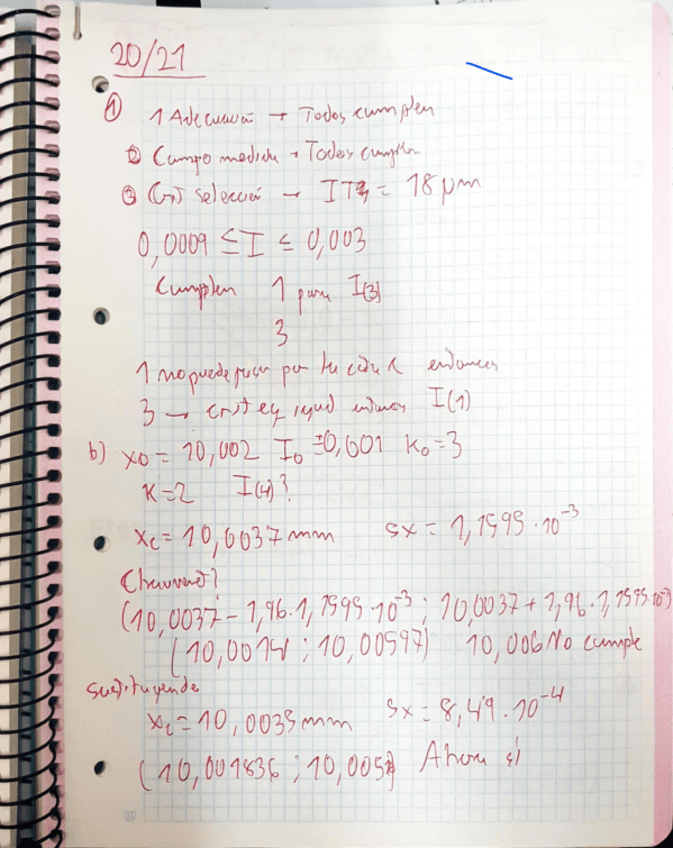 20/21
① 1 Adecuación → Todos cumplen
② Campo medida → Todos cumplen
③ Crit selección → IT7 = 18 μm
0,0009 ≤ I ≤ 0,003
Cumplen 1 para I(3)
3
1 no puede por entonces
3 → crit eq igual I(1)
b) x0 = 10,002 I0 ±0,001 K0=3
K=2 I(4)?
xc = 10,0037 mm sx = 1,1595·10⁻³
Chauvenet?
(10,0037 - 1,96·1,1595·10⁻³ ; 10,0037 + 1,96·1,1595·10⁻³)
(10,00141 ; 10,00597) 10,006 No cumple
Sustituyendo
xc = 10,0035 mm sx = 8,49·10⁻⁴
(10,001836 ; 10,005) Ahora sí